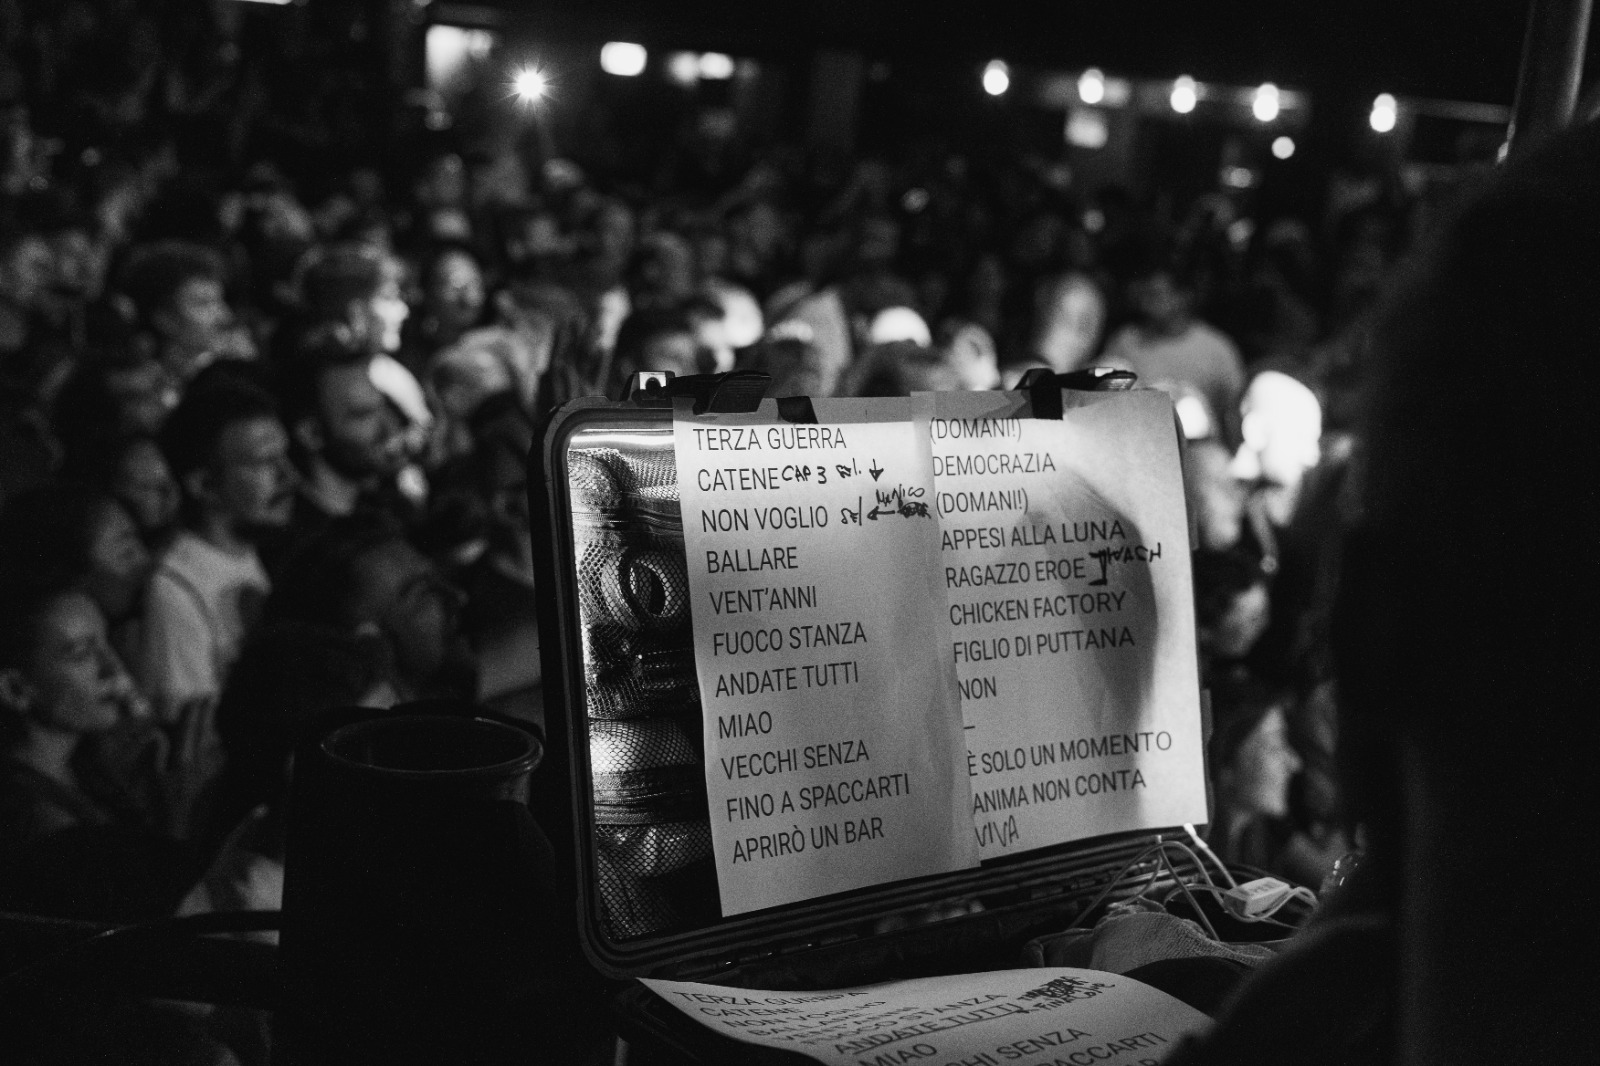 TERZA GUERRA
CATENE CAP 3
NON VOGLIO
BALLARE
VENT'ANNI
FUOCO STANZA
ANDATE TUTTI
MIAO
VECCHI SENZA
FINO A SPACCARTI
APRIRÒ UN BAR
(DOMANI!)
DEMOCRAZIA
(DOMANI!)
APPESI ALLA LUNA
RAGAZZO EROE
CHICKEN FACTORY
FIGLIO DI PUTTANA
NON
–
È SOLO UN MOMENTO
ANIMA NON CONTA
VIVA
TERZA GUERRA
CATENE
NON VOGLIO
BALLARE
STANZA
ANDATE TUTTI
MIAO
CHI SENZA
PACCARTI